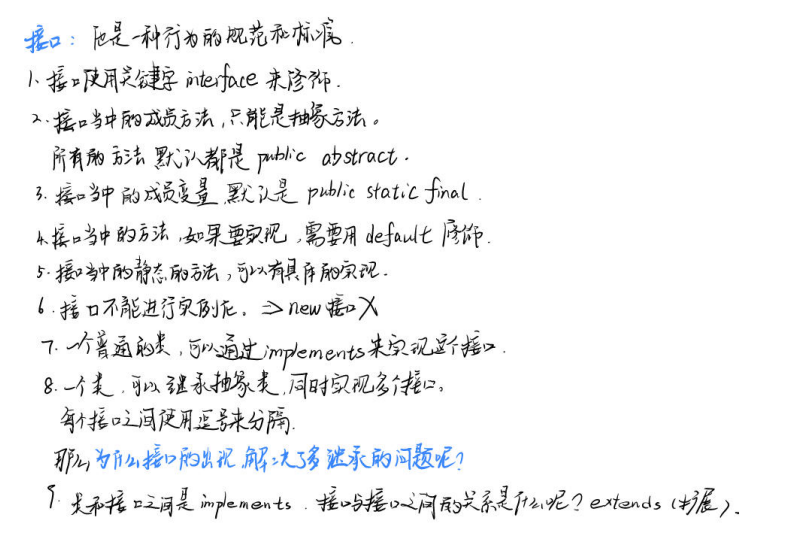 接口：他是一种行为的规范和标准.
1. 接口使用关键字 interface 来修饰.
2. 接口当中的成员方法，只能是抽象方法。
所有的方法 默认都是 public abstract.
3. 接口当中的成员变量 默认是 public static final.
4. 接口当中的方法，如果要实现，需要用 default 修饰.
5. 接口当中的静态的方法，可以有具体的实现.
6. 接口不能进行实例化。=> new 接口 X
7. 一个普通的类，可以通过 implements 来实现这个接口.
8. 一个类，可以继承抽象类，同时实现多个接口。
每个接口之间使用逗号来分隔.
那么为什么接口的出现 解决了多继承的问题呢？
9. 类和接口之间是 implements. 接口与接口之间的关系是什么呢？extends (扩展).